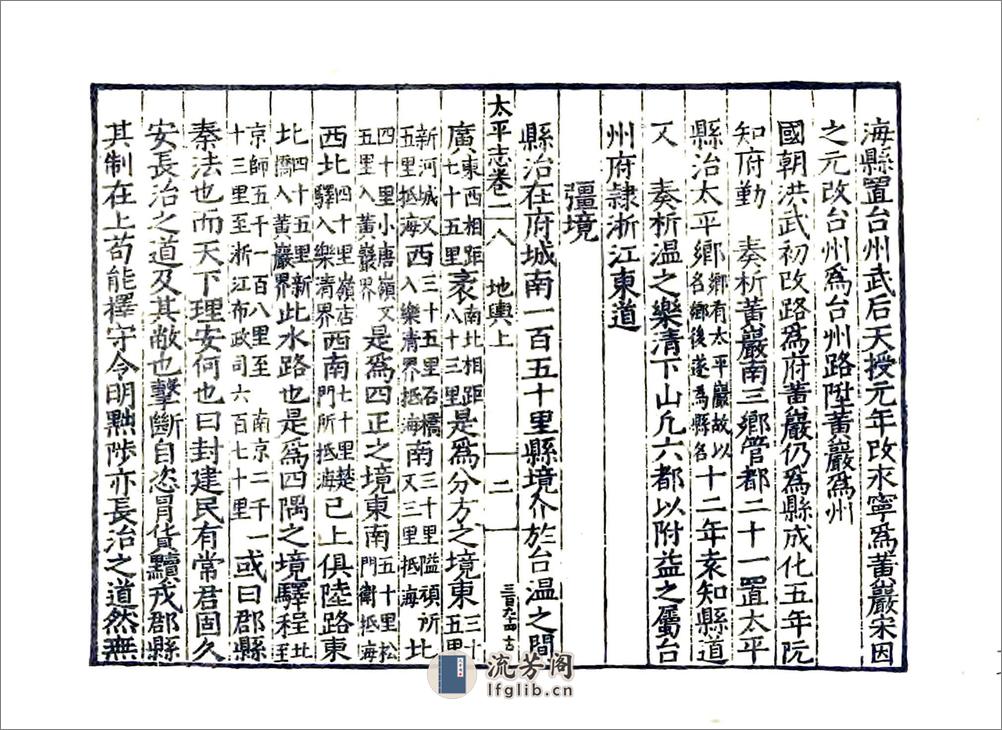 海縣置台州武后天授元年改永寧爲黃巖宋因
之元改台州爲台州路陞黃巖爲州
國朝洪武初改路爲府黃巖仍爲縣成化五年阮
知府勤　奏析黃巖南三鄉管都二十一置太平
縣治太平鄉鄉有太平巖故以名鄉後遂爲縣名十二年袁知縣道
又　奏析溫之樂清下山凢六都以附益之屬台
州府隷浙江東道
疆境
縣治在府城南一百五十里縣境介於台溫之間
太平志卷二　八　地輿上　二　三百九十四　古
廣東西相距七十五里袤南北相距八十三里是爲分方之境東三十五里
新河城又五里抵海西三十五里石橋入樂清界抵海南三十里隘頑所又三里抵海北
四十里小唐嶺又五里入黃巖界是爲四正之境東南五十里松門衛抵海
西北四十里嶺店驛入樂清界西南七十里楚門所抵海已上俱陸路東
北四十五里新橋入黃巖界此水路也是爲四隅之境驛程北至
京師五千一百八里至　南京二千一十三里至浙江布政司六百七十里　或曰郡縣
秦法也而天下理安何也曰封建民有常君固久
安長治之道及其敝也擊斷自恣冐貨黷戎郡縣
其制在上苟能擇守令明黜陟亦長治之道然無
流芳阁
lfglib.cn